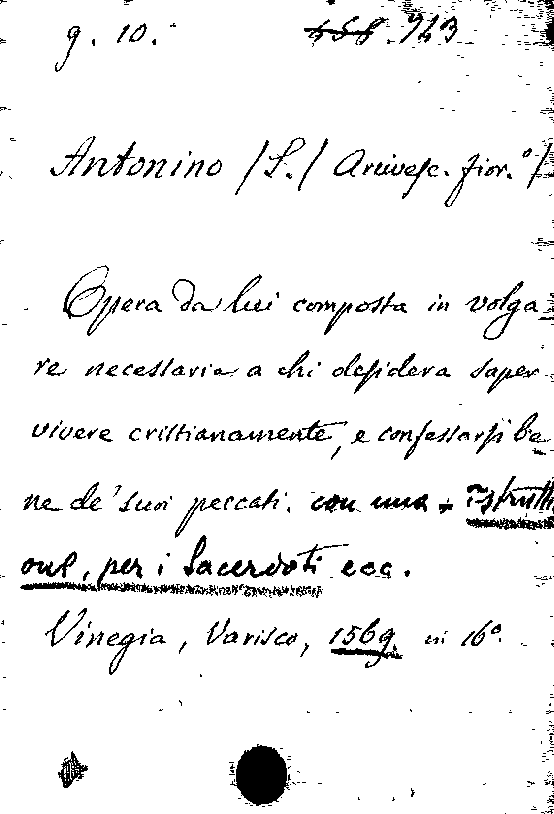 g. 10. 458. 923
Antonino /S./ Arcivesc. fior.º/
Opera da lui composta in volga
re necessaria a chi desidera saper
vivere cristianamente, e confessarsi be
ne de' suoi peccati. con una + istrutti
one, per i Sacerdoti ecc.
Vinegia, Varisco, 1569 in 16º.